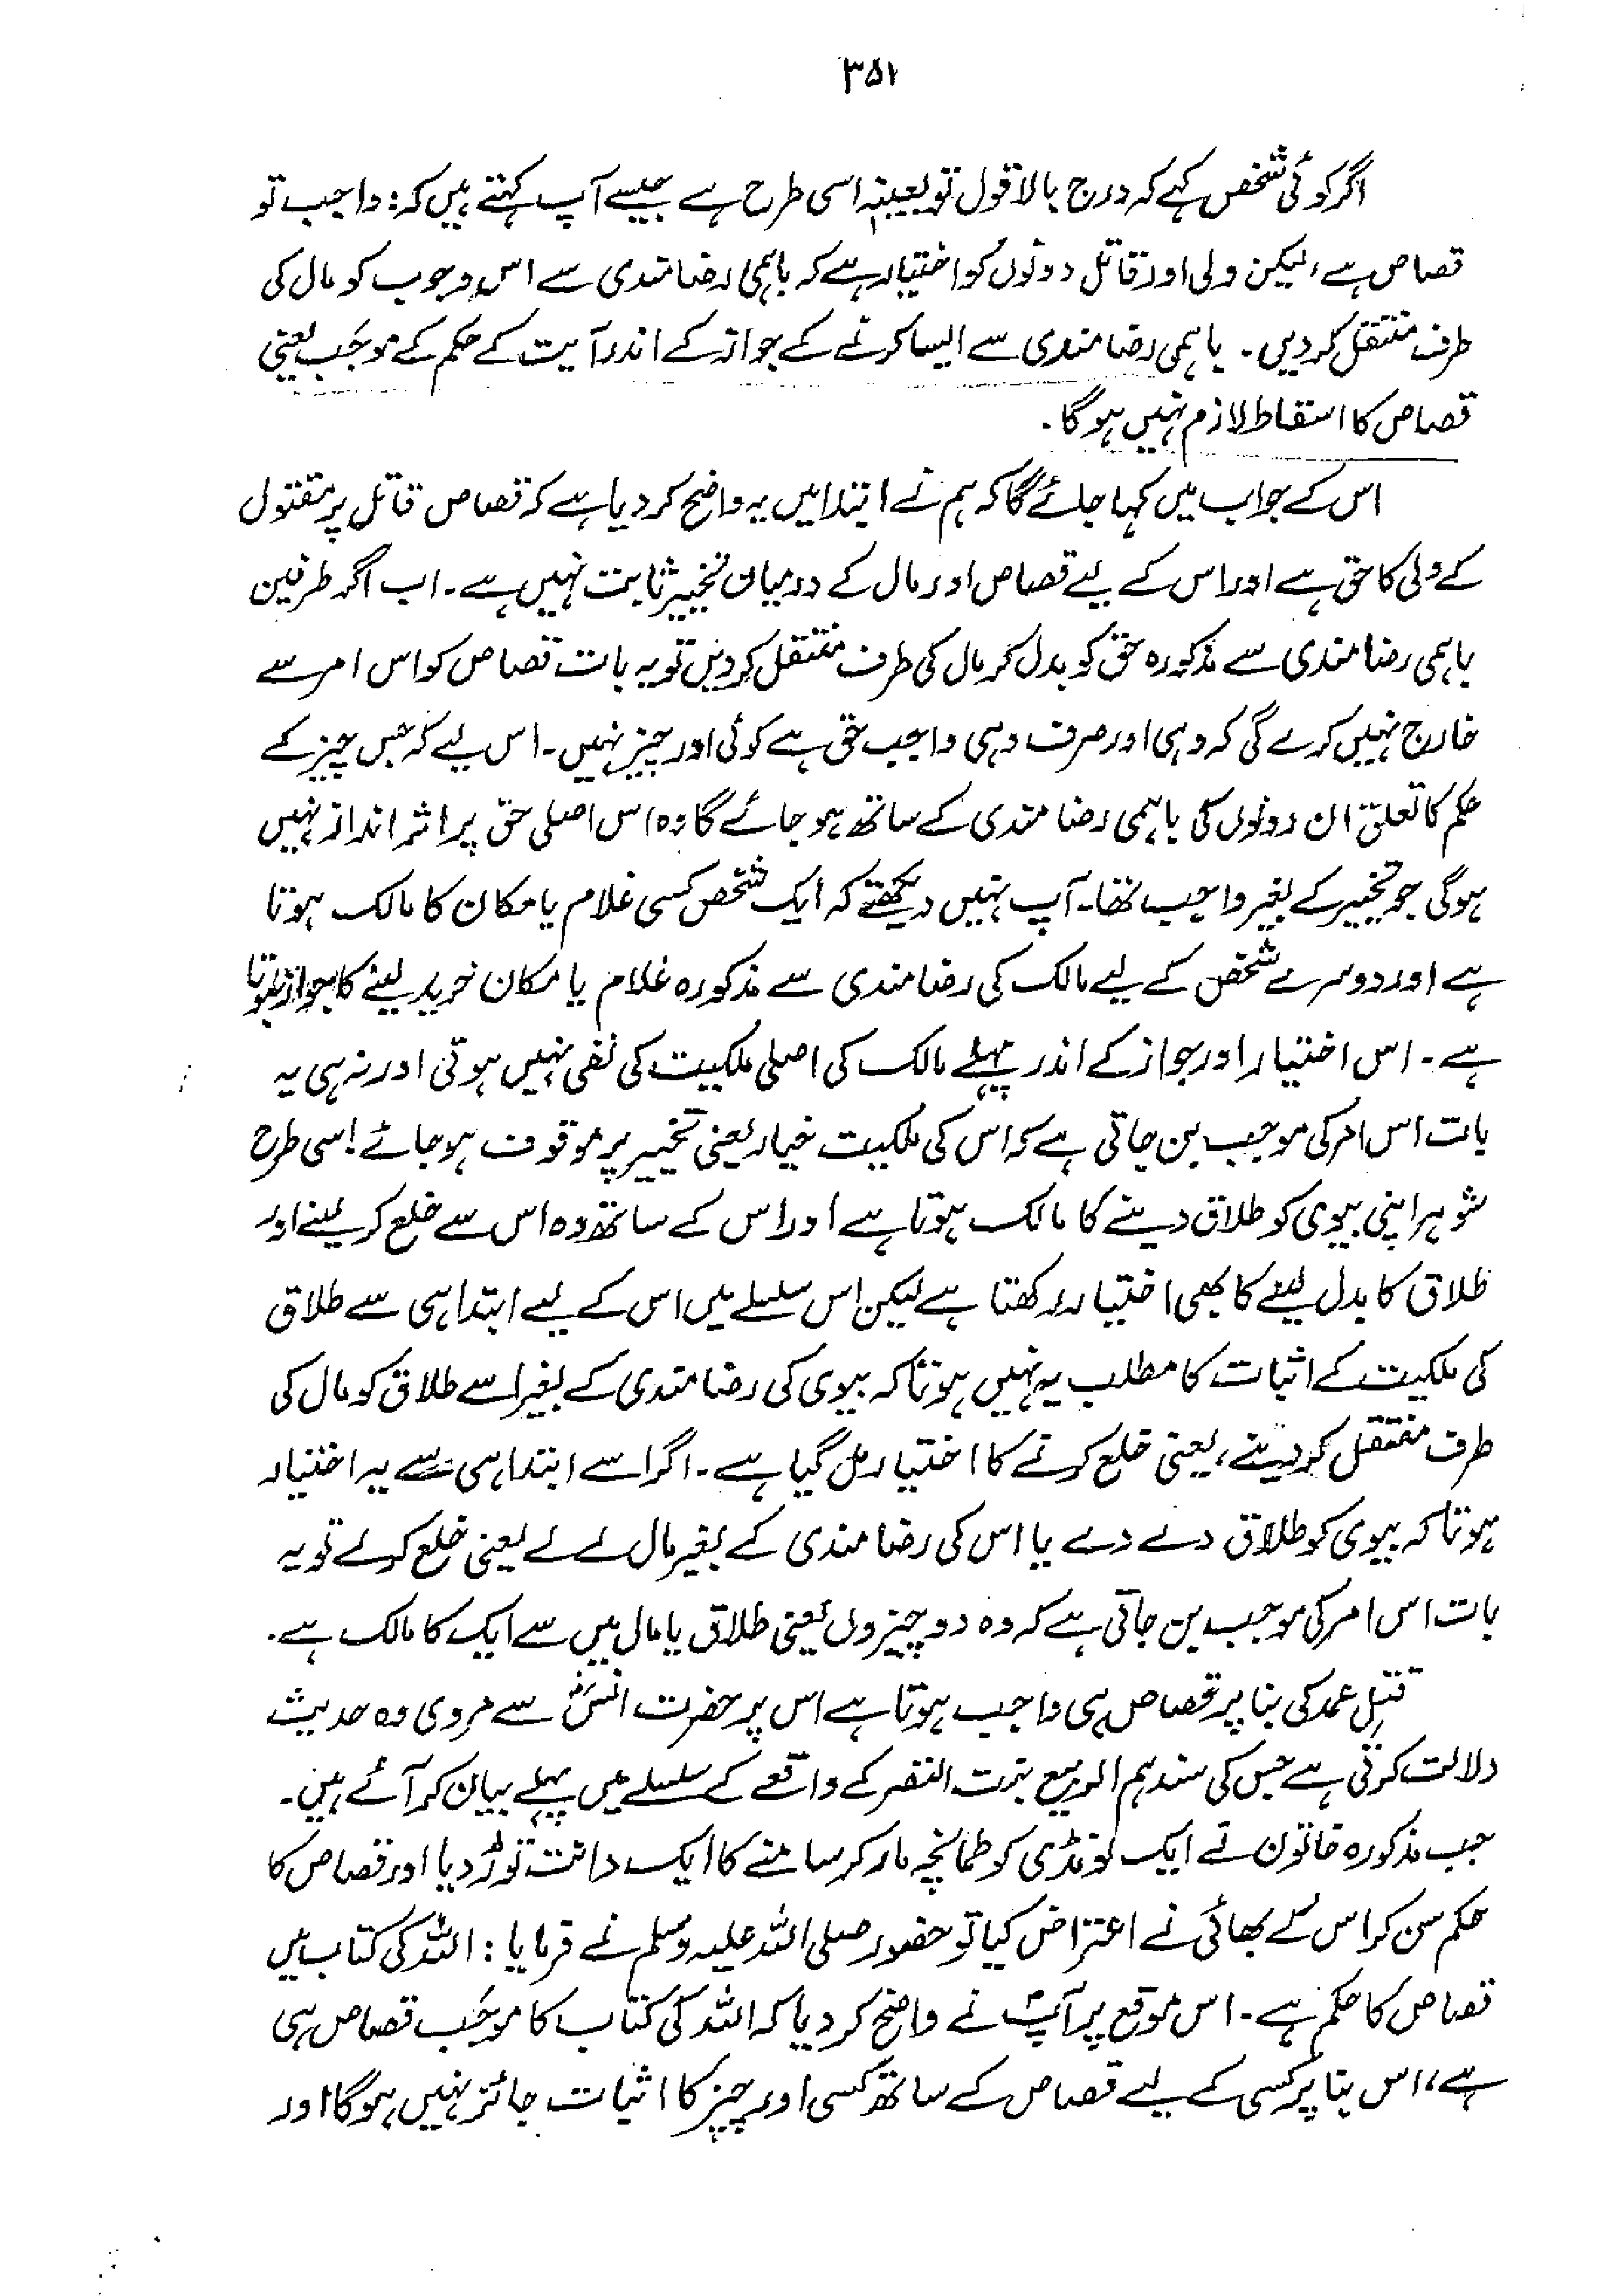 ۳۵۱
اگر کوئی شخص کہے کہ درج بالا قول تو بعینہ اسی طرح ہے جیسے آپ کہتے ہیں کہ: واجب تو
قصاص ہے، لیکن ولی اور قاتل دونوں کو اختیار ہے کہ باہمی رضامندی سے اس وجوب کو مال کی
طرف منتقل کردیں۔ باہمی رضامندی سے ایسا کرنے کے جواز کے اندر آیت کے حکم کے موجَب یعنی
قصاص کا اسقاط لازم نہیں ہوگا۔
اس کے جواب میں کہا جائے گا کہ ہم نے ابتدا میں یہ واضح کردیا ہے کہ قصاص قاتل پر مقتول
کے ولی کا حق ہے اور اس کے لیے قصاص اور مال کے درمیان تخییر ثابت نہیں ہے۔ اب اگر طرفین
باہمی رضامندی سے مذکورہ حق کو بدل کر مال کی طرف منتقل کردیں تو یہ بات قصاص کو اس امر سے
خارج نہیں کرے گی کہ وہی اور صرف وہی واجب حق ہے کوئی اور چیز نہیں۔ اس لیے کہ جس چیز کے
حکم کا تعلق ان دونوں کی باہمی رضامندی کے ساتھ ہو جائے گا وہ اس اصلی حق پر اثر انداز نہیں
ہوگی جو تخییر کے بغیر واجب تھا۔ آپ نہیں دیکھتے کہ ایک شخص کسی غلام یا مکان کا مالک ہوتا
ہے اور دوسرے شخص کے لیے مالک کی رضامندی سے مذکورہ غلام یا مکان خرید لینے کا جواز ہوتا
ہے۔ اس اختیار اور جواز کے اندر پہلے مالک کی اصلی ملکیت کی نفی نہیں ہوتی اور نہ ہی یہ
بات اس امر کی موجب بن جاتی ہے کہ اس کی ملکیت خیار یعنی تخییر پر موقوف ہو جائے! اسی طرح
شوہر اپنی بیوی کو طلاق دینے کا مالک ہوتا ہے اور اس کے ساتھ وہ اس سے خلع کر لینے اور
طلاق کا بدل لینے کا بھی اختیار رکھتا ہے لیکن اس سلسلے میں اس کے لیے ابتدا ہی سے طلاق
کی ملکیت کے اثبات کا مطلب یہ نہیں ہوتا کہ بیوی کی رضامندی کے بغیر اسے طلاق کو مال کی
طرف منتقل کر دینے، یعنی خلع کرنے کا اختیار مل گیا ہے۔ اگر اسے ابتدا ہی سے یہ اختیار
ہوتا کہ بیوی کو طلاق دے دے یا اس کی رضامندی کے بغیر مال لے لے یعنی خلع کرلے تو یہ
بات اس امر کی موجب بن جاتی ہے کہ وہ دو چیزوں یعنی طلاق یا مال میں سے ایک کا مالک ہے۔
قتلِ عمد کی بنا پر قصاص ہی واجب ہوتا ہے اس پر حضرت انسؓ سے مروی وہ حدیث
دلالت کرتی ہے جس کی سند ہم الربیع بنت النضر کے واقعے کے سلسلے میں پہلے بیان کر آئے ہیں۔
جب مذکورہ خاتون نے ایک لونڈی کو طمانچہ مار کر سامنے کا ایک دانت توڑ دیا اور قصاص کا
حکم سن کر اس کے بھائی نے اعتراض کیا تو حضور صلی اللہ علیہ وسلم نے فرمایا: اللہ کی کتاب میں
قصاص کا حکم ہے۔ اس موقع پر آپؐ نے واضح کر دیا کہ اللہ کی کتاب کا موجَب قصاص ہی
ہے، اس بنا پر کسی کے لیے قصاص کے ساتھ کسی اور چیز کا اثبات جائز نہیں ہوگا اور